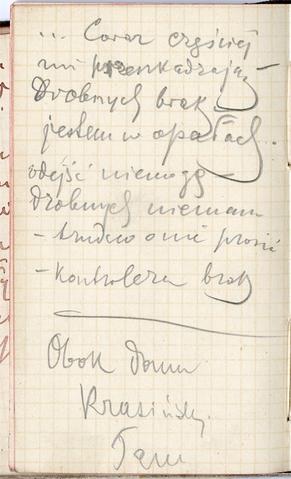 ... Coraz częściej
mi przeszkadzają
Drobnych brak
jestem w opałach..
odejść niemogę -
drobnych niemam
- trudno o nie prosić
- Kontrolera brak
Obok domu
Krasińsky.
Tam